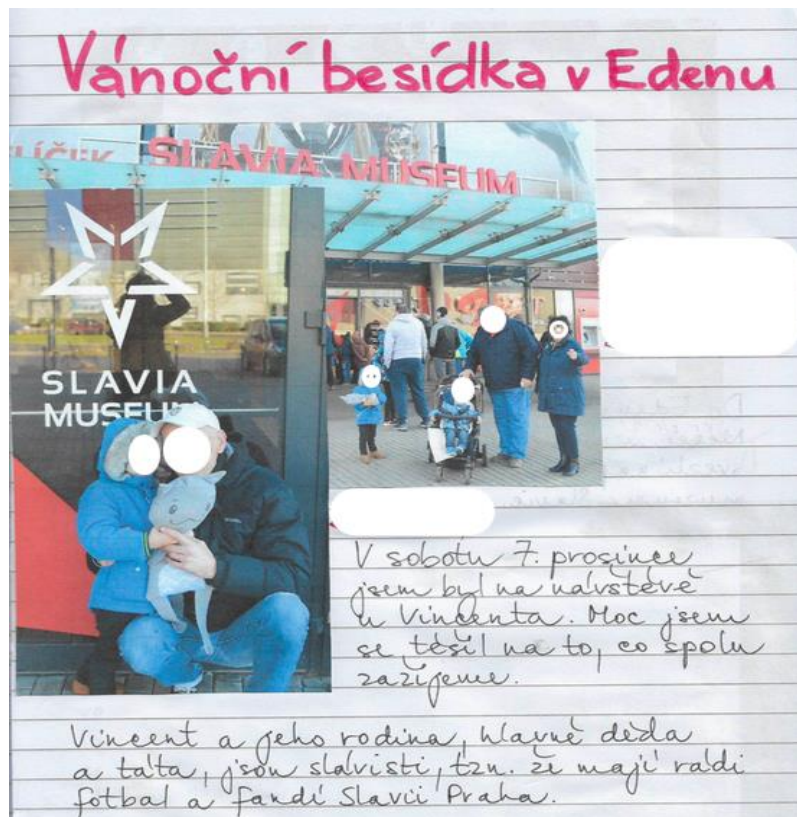 Vánoční besídka v Edenu
SLAVIA MUSEUM
SLAVIA
MUSEUM
V sobotu 7. prosince
jsem byl na návštěvě
u Vincenta. Moc jsem
se těšil na to, co spolu
zažijeme.
Vincent a jeho rodina, hlavně děda
a táta, jsou slávisti, tzn. že mají rádi
fotbal a fandí Slavii Praha.